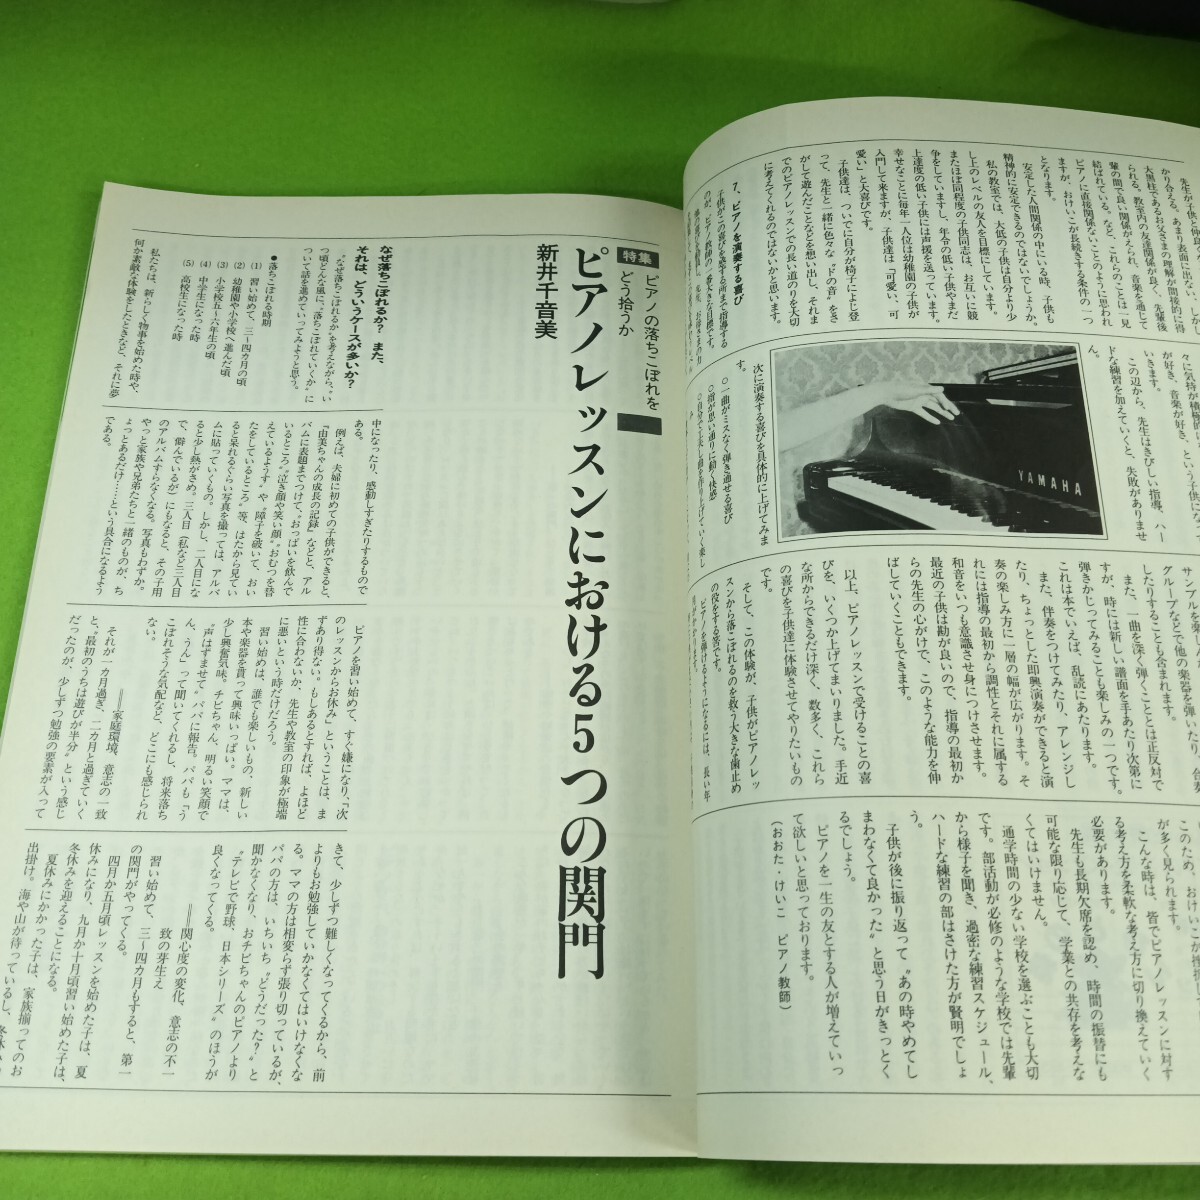 かり合える。あまり表面に出ない、しか
大黒柱であるお父さまの理解が間接的に得
られる。教室内の友達関係が良く、先輩後
輩の間で良い関係がえられ、音楽を通じて
結ばれている。など、これらのことは一見
ピアノに直接関係ないことのように思われ
ますが、おけいこが長続きする条件の一つ
となります。
安定した人間関係の中にいる時、子供も
精神的に安定できるのではないでしょうか。
私の教室では、大低の子供は自分より少
し上のレベルの友人を目標にしています。
またほぼ同程度の子供同志は、お互いに競
争をしていますし、年令の低い子供やまだ
上達度の低い子供には声援を送っています。
幸せなことに毎年一人位は幼稚園の子供が
入門して来ますが、子供達は「可愛い、可
愛い」と大喜びです。
子供達は、ついでに自分が椅子によじ登
って、先生と一緒に色々な〝ドの音〟をさ
がして遊んだことなどを想い出し、それま
でのピアノレッスンでの長い道のりを大切
に考えてくれるのではないかと思います。
7、ピアノを演奏する喜び
子供がこの喜びを感ずる所まで指導する
のが、ピアノ教師の一番大きな目標です。
YAMAHA
々に気持が積極的
が好き、音楽が好き、という子供にな
いきます。
この辺から、先生はきびしい指導、ハー
ドな練習を加えていくと、失敗がありませ
ん。
次に演奏する喜びを具体的に上げてみま
す。
○一曲がミスなく弾き通せる喜び
○指が思い通りに動く快感
サンプルを楽
グループなどで他の楽器を弾いたり、合奏
したりすることも含まれます。
また、一曲を深く弾くこととは正反対で
すが、時には新しい譜面を手あたり次第に
弾きかじってみることも楽しみの一つです。
これは本でいえば、乱読にあたります。
また、伴奏をつけてみたり、アレンジし
たり、ちょっとした即興演奏ができると演
奏の楽しみ方に一層の幅が広がります。そ
れには指導の最初から調性とそれに属する
和音をいつも意識させ身につけさせます。
最近の子供は勘が良いので、指導の最初か
らの先生の心がけで、このような能力を伸
ばしていくこともできます。
以上、ピアノレッスンで受けることの喜
びを、いくつか上げてまいりました。手近
な所からできるだけ深く、数多く、これら
の喜びを子供達に体験させてやりたいもの
です。
そして、この体験が、子供がピアノレッ
スンから落こぼれるのを救う大きな歯止め
の役をする筈です。
ピアノを弾けるようになるには、長い年
このため、おけいこが挫折し
が多く見られます。
こんな時は、皆でピアノレッスンに対す
る考え方を柔軟な考え方に切り換えていく
必要があります。
先生も長期欠席を認め、時間の振替にも
可能な限り応じて、学業との共存を考えな
くてはいけません。
通学時間の少ない学校を選ぶことも大切
です。部活動が必修のような学校では先輩
から様子を聞き、過密な練習スケジュール、
ハードな練習の部はさけた方が賢明でしょ
う。
子供が後に振り返って〝あの時やめてし
まわなくて良かった〟と思う日がきっとく
るでしょう。
ピアノを一生の友とする人が増えていっ
て欲しいと思っております。
（おおた・けいこ　ピアノ教師）
特集
ピアノの落ちこぼれを
どう拾うか
ピアノレッスンにおける5つの関門
新井千音美
なぜ落ちこぼれるか？　また、
それは、どういうケースが多いか？
〝なぜ落ちこぼれるか〟を考えながら、い
つ頃どんな風に、〝落ちこぼれていくか〟に
ついて話を進めていってみようと思う。
●落ちこぼれる時期
(1)　習い始めて、三～四カ月の頃
(2)　幼稚園や小学校へ進んだ頃
(3)　小学校五～六年生の頃
(4)　中学生になった時
(5)　高校生になった時
私たちは、新らしく物事を始めた時や、
何か素敵な体験をしたときなど、それに夢
中になったり、感動しすぎたりするもので
ある。
例えば、夫婦に初めての子供ができると、
『由美ちゃんの成長の記録』などと、アル
バムに表題までつけて、〝おっぱいを飲んで
いるところ〟〝泣き顔や笑い顔〟〝おむつを替
えているようす〟や〝障子を破いて、おい
たをしているところ〟等、はたから見てい
ると呆れるぐらい写真を撮っては、アルバ
ムに貼っていくもの。しかし、二人目にな
ると少し熱がさめ。三人目（私など三人目
で、僻んでいるが）にもなると、その子用
のアルバムすらなくなる。写真もわずか。
やっと家族や兄弟たちと一緒のものが、ち
ょっとあるだけ……という具合になるよう
である。
ピアノを習い始めて、すぐ嫌になり、「次
のレッスンからお休み」ということは、ま
ずあり得ない。もしあるとすれば、よほど
性に合わないか、先生や教室の印象が極端
に悪いという時だけだろう。
習い始めは、誰でも楽しいもの、新しい
本や楽器を貰って興味いっぱい。ママは、
少し興奮気味。チビちゃん、明るい笑顔で
〝声はずませて〟パパに報告。パパも「う
ん、うん」って聞いてくれるし、将来落ち
こぼれそうな気配など、どこにも感じられ
ない。
＝家庭環境、意志の一致
それが一カ月過ぎ、二カ月と過ぎていく
と、〝最初のうちは遊びが半分〟という感じ
だったのが、少しずつ勉強の要素が入って
きて、少しずつ難しくなってくるから、前
よりもお勉強していかなくてはいけなくな
る。ママの方は相変らず張り切っているが、
パパの方は、いちいち〝どうだった？〟と
聞かなくなり、おチビちゃんのピアノより
〝テレビで野球、日本シリーズ〟のほうが
良くなってくる。
＝関心度の変化、意志の不一
致の芽生え
習い始めて、三～四カ月もすると、第一
の関門がやってくる。
四月か五月頃レッスンを始めた子は、夏
休みになり、九月か十月頃習い始めた子は、
冬休みを迎えることになる。
夏休みにかかった子は、家族揃ってのお
出掛け。海や山が待っているし、冬休み